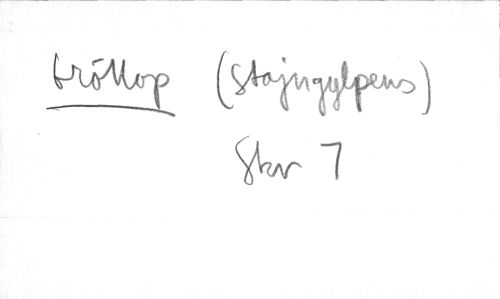 tröllop (Stajngylpens)
Skr 7